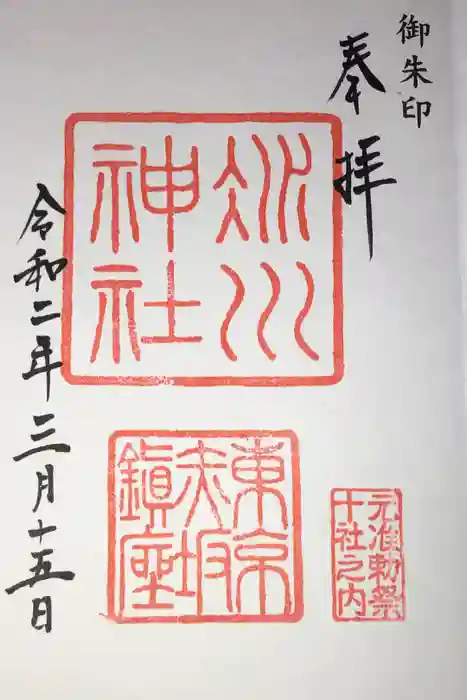 御朱印
奉拝
氷川
神社
東京
赤坂
鎮座
元准勅祭
十社之内
令和二年三月十五日